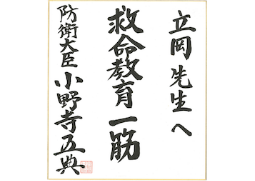 立岡先生へ
救命教育一筋
防衛大臣 小野寺五典